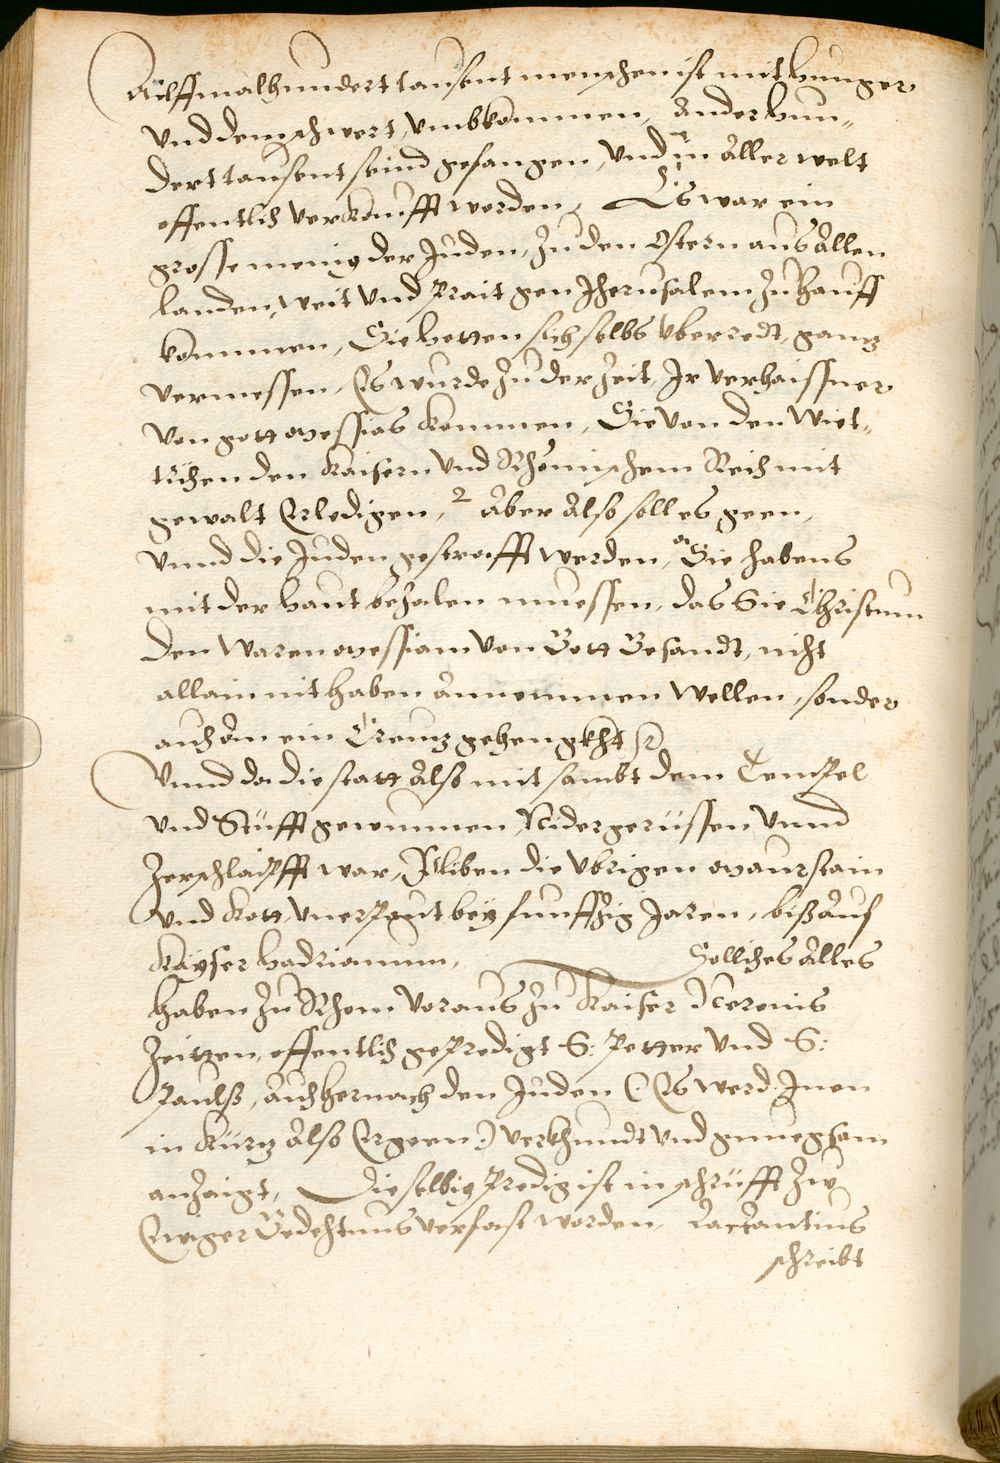 Ailffmalhundert tausent menschen ist mit hunger
Vnd dem schwert, vmbkommen, Anderhun„
dert tausent seind gefangen, Vnd in Aller welt
offentlich verkaufft worden, Es war ein
grosse menig der Juden, zu den Ostern aus Allen
landen, weit vnd Prait gen Jherusalem zu hauff
kommen, Sie hetten sich selbs vberredt, gantz
vermessen, Es wurde zu der zeit, Ir verhaissner
von gott Messias kommen, Sie von den Wiet„
richen den Kaisern vnd Rhömischem Reich mit
gewalt Erledigen, 2 Aber Also soll es geen,
vnnd die Juden gestrafft werden, Sie habens
mit der haut bezalen muessen, das Sie Christum
den Waren Messiam von Gott Gesandt, nicht
allain nit haben Annemmen wellen, sonder
auch an ein Creutz gehengkht
Vnnd da die statt Also mit sambt dem Tempel
vnd Stüfft gewunnen, Nidergerüssen vnnd
zerschlaipfft war, Pliben die vbrigen Maurstain
vnd Kott, vnerpaut bey funffzig Jaren, biß Auf
Kayser Hadrianum, Solliches Alles
haben zu Rhom voraus zu Kaiser Neronis
zeitten, offentlich gePredigt S: Petter vnd S:
Paulß, Auch hernach den Juden (: Es werd Inen
in kürtz Also Ergeen :) verkhundt vnd gnuegsam
anzaigt, Dieselbig Predig ist in schrüfft zu
Ewiger Gedechtnus verfast worden, Lactantius
schreibt